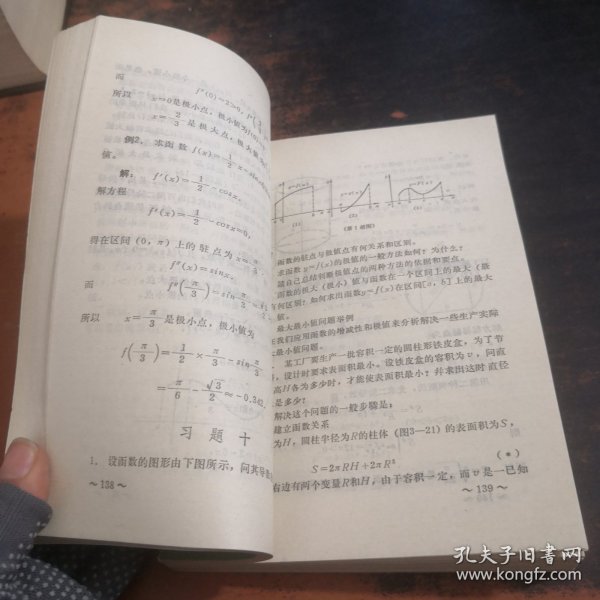 而
f″(0)=2>0, f″(
所以 x=0是极小点，极小值为f(0)=
x=2/3 是极大点，极大值为
例2. 求函数 f(x)=1/2 x-sin
值。
解: f′(x)=1/2-cosx,
解方程
f′(x)=1/2-cosx=0,
得在区间 (0, π) 上的驻点为 x=π/3.
f″(x)=sinx,
而 f″(π/3)=sin
所以 x=π/3 是极小点，极小值为
f(π/3)=1/2×π/3-sinπ/3
=π/6-√3/2≈-0.342.
习题十
1. 设函数的图形由下图所示，问其导
~138~
y=f(x)
(1)
y=f(x)
(2)
y=f(x)
(3)
(第1题图)
函数的驻点与极值点有何关系和区别。
求函数y=f(x)的极值的一般方法如何？为什么？
请自己总结判断极值点的两种方法的依据和要点。
函数的极大（极小）值与函数在一个区间上的最大（最
有何区别？如何求出函数y=f(x)在区间[a, b]上的最大
值。
最大最小值问题举例
我们应用函数的增减性和极值来分析解决一些生产实际
最小值问题。
某工厂要生产一批容积一定的圆柱形铁皮盒，为了节
，设计时要求表面积最小。设铁皮盒的容积为v，问直
高H各为多少时，才能使表面积最小？并求出这时直径
是多少？
解决这个问题的一般步骤是：
建立函数关系
为H，圆柱半径为R的柱体（图3—21）的表面积为S，
S=2πRH+2πR²
(*)
右边有两个变量R和H，由于容积一定，而v是一已知
~139~
孔夫子旧书网
www.kongfz.com